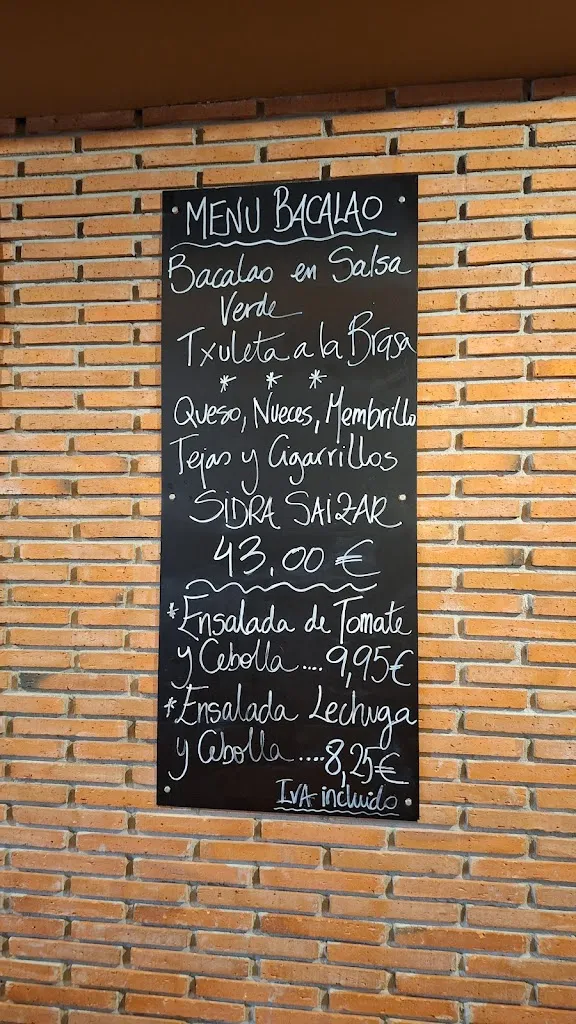 MENU BACALAO
Bacalao en Salsa
Verde
Txuleta a la Brasa
* * *
Queso, Nueces, Membrillo
Tejas y Cigarrillos
SIDRA SAIZAR
43,00 €
*Ensalada de Tomate
y Cebolla .... 9,95€
*Ensalada Lechuga
y Cebolla .... 8,25€
IVA incluido